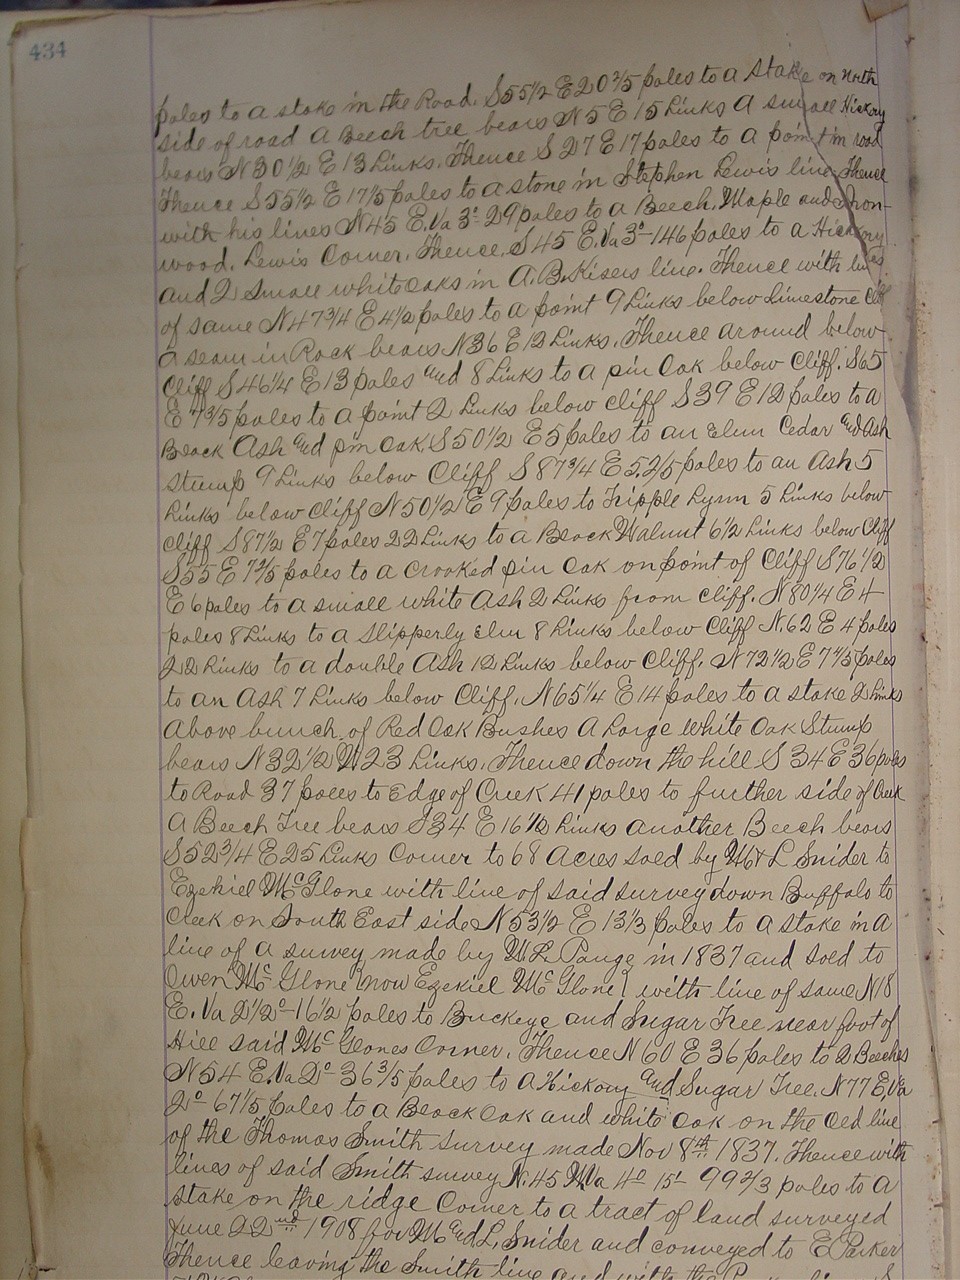 434
poles to a stake in the Road. S 55 1/2 E 20 3/5 poles to a stake on North
side of road a Beech tree bears N 5 E 15 Links A small Hickory
bears N 30 1/2 E 13 Links. Thence S 27 E 17 poles to a point in road
Thence S 55 1/2 E 17 1/5 poles to a stone in Stephen Lewis line. Thence
with his lines N 45 E. Va 3°- 29 poles to a Beech, Maple and Iron-
wood. Lewis Corner. Thence. S 45 E. Va 3°-146 poles to a Hickory
and 2 small white oaks in A. B. Kisers line. Thence with lines
of same N 47 3/4 E 4 1/2 poles to a point 9 Links below Limestone Cliff
a seam in Rock bears N 36 E 12 Links. Thence around below
Cliff S 46 1/4 E 13 poles and 8 Links to a pin Oak below Cliff. S 65
E 7 3/5 poles to a point 2 Links below cliff S 39 E 12 poles to a
Black Ash and pin oak. S 50 1/2 E 5 poles to an Elum Cedar and Ash
stump 9 Links below Cliff S 87 3/4 E 5.2/5 poles to an Ash 5
Links below Cliff N 50 1/2 E 9 poles to Tripple Lynn 5 Links below
Cliff S 87 1/2 E 7 poles 22 Links to a Black Walnut 6 1/2 Links below Cliff
S 55 E 7 2/5 poles to a crooked pin Oak on point of Cliff S 76 1/2
E 6 poles to a small white Ash 2 Links from cliff. N 80 1/4 E 4
poles 8 Links to a Slipperly Elm 8 Links below Cliff N. 62 E 4 poles
22 Links to a double Ash 12 Links below Cliff. N 72 1/2 E 7 4/5 poles
to an Ash 7 Links below Cliff. N 65 1/4 E 14 poles to a stake 2 Links
above bunch of Red Oak Bushes A Large white Oak Stump
bears N 32 1/2 W 23 Links. Thence down the hill S 34 E 36 poles
to Road 37 poles to Edge of Creek 41 poles to further side of Creek
A Beech Tree bears S 34 E 16 1/2 Links another Beech bears
S 52 3/4 E 25 Links Corner to 68 Acres sold by M & L Snider to
Ezekiel McGlone with line of said survey down Buffalo to
Creek on South East side N 53 1/2 E 13 1/3 poles to a stake in a
line of a survey made by W. L. Pauge in 1837 and sold to
Owen McGlone (now Ezekiel McGlone) with line of same N 18
E. Va 2 1/2°-16 1/2 poles to Buckeye and Sugar Tree near foot of
Hill said McGlones Corner. Thence N 60 E 36 poles to 2 Beeches
N 54 E. Va 2°- 36 3/5 poles to a Hickory and Sugar Tree. N 77 E. Va
2°- 67 1/5 poles to a Black Oak and white oak on the old line
of the Thomas Smith survey made Nov 8th 1837. Thence with
lines of said Smith survey N. 45 W Va 4° 15' 99 2/3 poles to a
stake on the ridge Corner to a tract of land surveyed
June 22nd 1908 for M and L. Snider and conveyed to E Parker
Thence leaving the Smith line and with the